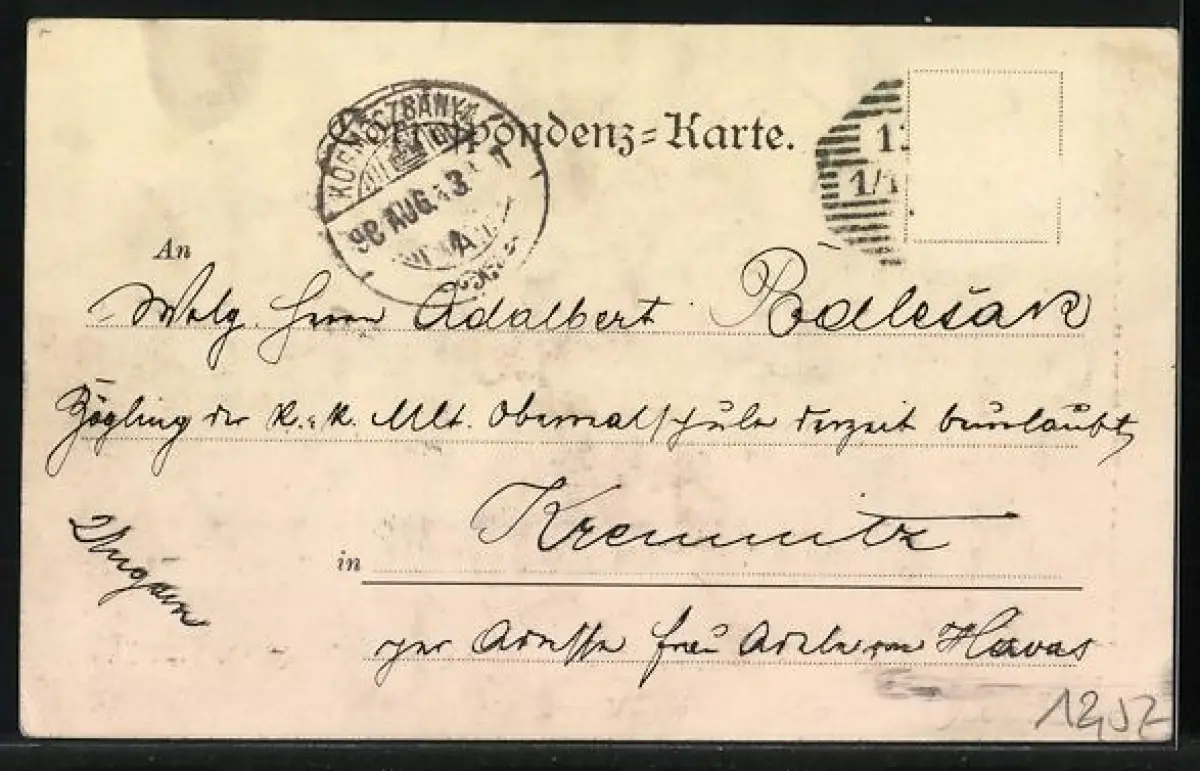 Correspondenz=Karte.
KÖRMÖCZBÁNYA
98 AUG. 3
A
12
1/1
An
Wolg. Herrn Adalbert Podlešak
Zögling der k. u. k. Mlt. Oberrealschule derzeit beurlaubt,
in Kremnitz
Ungarn
per Adresse Frau Adele von Havas